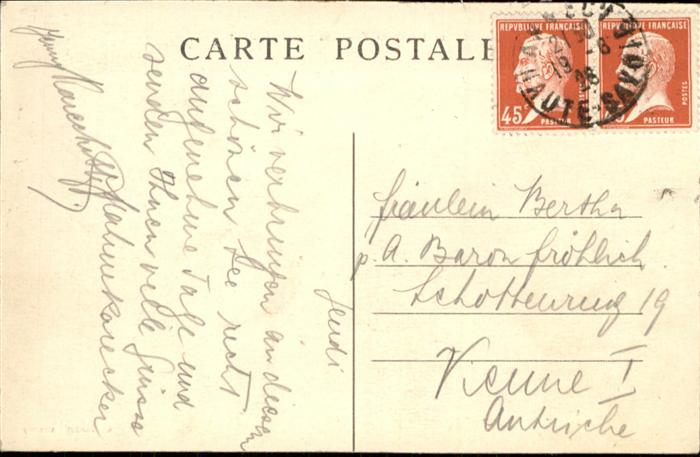 CARTE POSTALE
RÉPUBLIQUE FRANÇAISE
45c
PASTEUR
RÉPUBLIQUE FRANÇAISE
POSTES
PASTEUR
HAUTE-SAVOIE
Jeudi
Wir verbringen an diesem
schönen See recht
angenehme Tage und
senden Ihnen viele Grüsse
Fräulein Bertha
p. A. Baron Fröhlich
Schottenring 19
Vienne I
Autriche